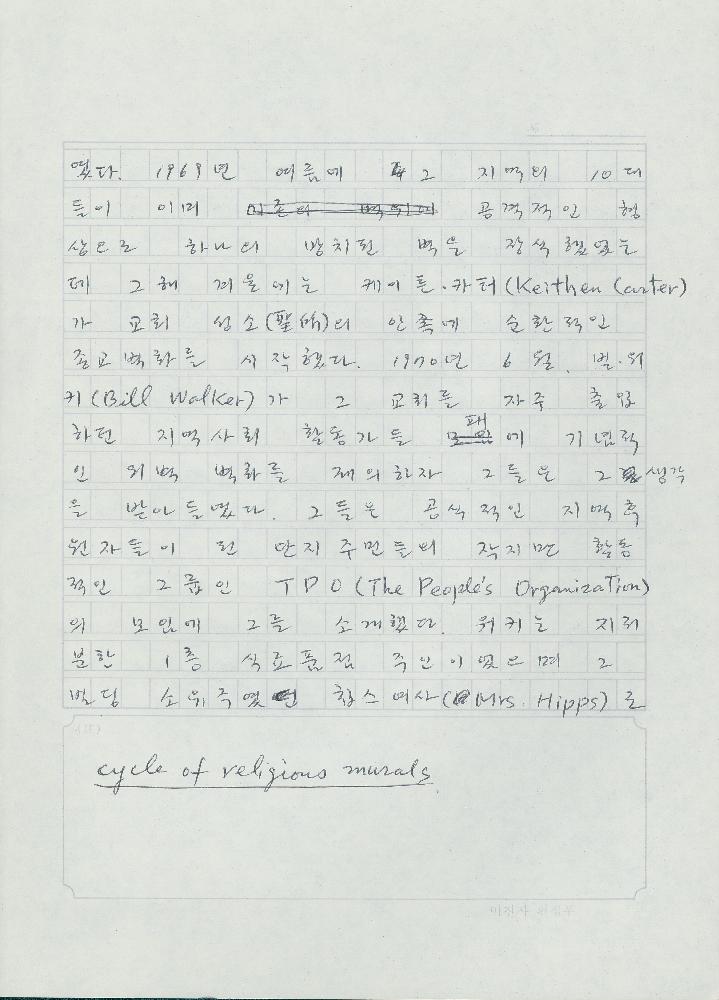 였다. 1969년 여름에 그 지역의 10대
들이 이미 기존의 벽위에 공격적인 형
상으로 하나의 방치된 벽을 장식했었는
데 그해 겨울에는 케이튼·카터(Keithen Carter)
가 교회 성소(聖所)의 안쪽에 순환적인
종교벽화를 시작했다. 1970년 6월, 빌·워
커(Bill Walker)가 그 교회를 자주 출입
하던 지역사회 활동가들 패에 기념적
인 외벽 벽화를 제의하자 그들은 그 생각
을 받아들였다. 그들은 공식적인 지역
원자들이 된 단지주민들의 작지만 활동
적인 그룹인 TPO(The People's Organization)
의 모임에 그를 소개했다. 워커는 지저
분한 1층 식료품점 주인이었으며 그
빌딩 소유주였던 힙스여사(Mrs. Hipps)로
cycle of religious murals